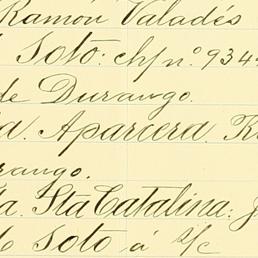 Ramón Valadés
Soto: ch/ nº. 934
de Durango.
Aparcera.
rango.
Sta Catalina:
Soto á